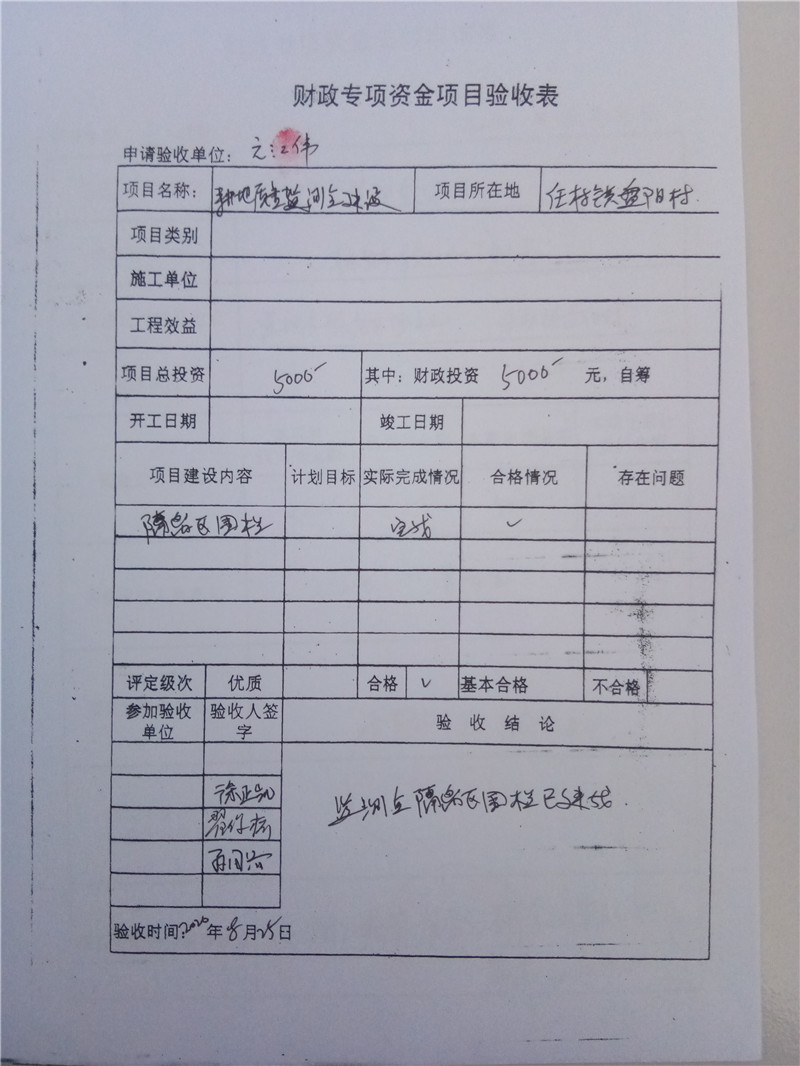 财政专项资金项目验收表
申请验收单位： 元江伟
项目名称： 耕地质量监测点建设 项目所在地 任村镇盘阳村
项目类别
施工单位
工程效益
项目总投资 5000 其中：财政投资 5000 元，自筹
开工日期 竣工日期
项目建设内容 计划目标 实际完成情况 合格情况 存在问题
隔离区围栏 完成 ✓
评定级次 优质 合格 ✓ 基本合格 不合格
参加验收单位 验收人签字 验 收 结 论
监测点隔离区围栏已建成.
验收时间：2020年8月25日